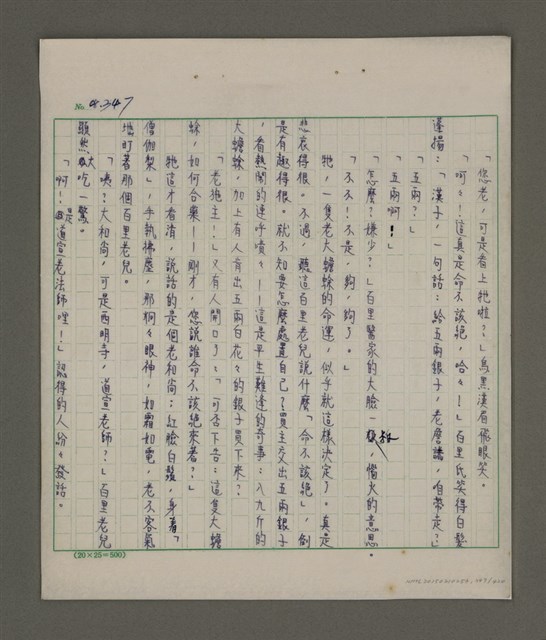 No. 4-347
「您老，可是看上牠啦？」烏黑漢眉飛眼笑。
「呵々！這真是命不該絕，哈々！」百里氏笑得白髯
蓬揚：「漢子，一句話：給五兩銀子，老詹諸，咱帶走？」
「五兩？」
「五兩啊！」
「怎麼？嫌少？」百里醫家的大臉一皺，惱火的意思。
「不不！不是，夠，夠了。」
牠，一隻老大蟾蜍的命運，似乎就這樣決定了。真是
悲哀得很。不過，聽這百里老兒說什麼「命不該絕」，倒
是有趣得很。就不知要怎麼處置自己？買主交出五兩銀子
，看熱鬧的連呼噴々——這是平生難逢的奇事：八九斤的
大蟾蜍，加上有人肯出五兩白花々的銀子買下來？
「老施主！」又有人開口了：「可否下告：這隻大蟾
蜍，如何合藥——剛才，您說誰命不該絕來著？」
牠這才看清，說話的是個老和尚：紅臉白鬚，身著「
僧伽梨」，手執拂塵，那炯々眼神，如霜如電，老不客氣
地盯著那個百里老兒。
「咦？大和尚，可是西明寺，道宣老師？」百里老兒
顯然大吃一驚。
「啊！是道宣老法師哩！」認得的人紛々發話。
(20×25=500)